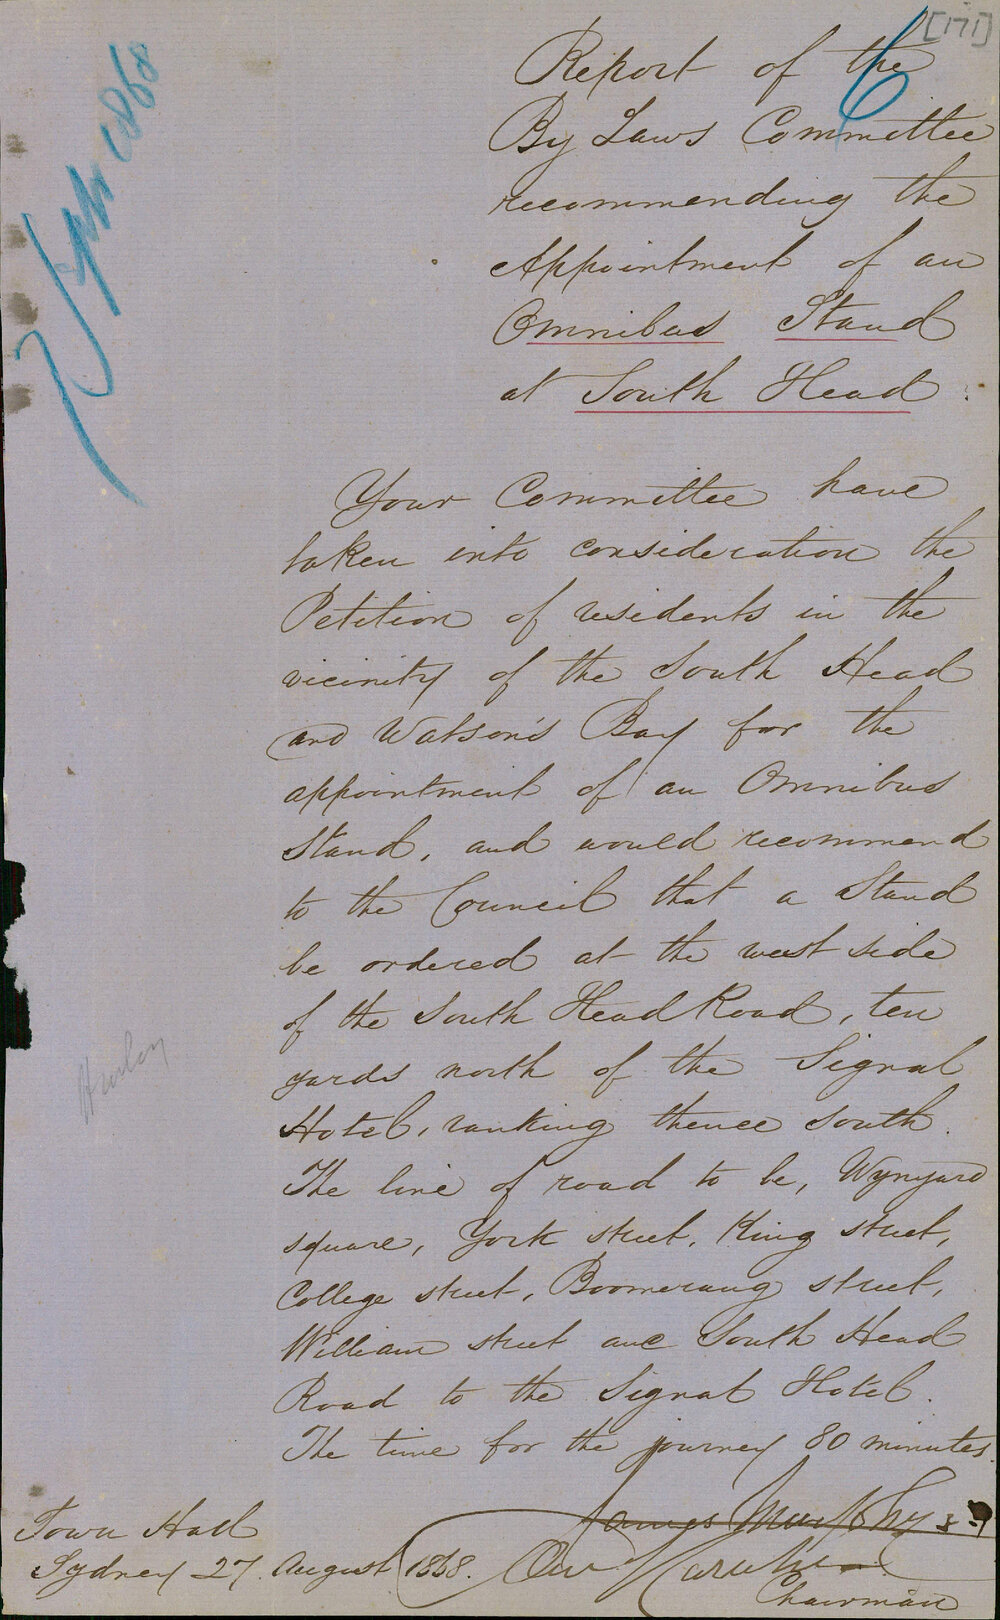 [171]
6
1868
Report of the
By Laws Committee
recommending the
Appointment of an
Omnibus Stand
at South Head
Your Committee have
taken into consideration the
Petition of residents in the
vicinity of the South Head
and Watson's Bay for the
appointment of an Omnibus
Stand, and would recommend
to the Council that a Stand
be ordered at the west side
of the South Head Road, ten
yards north of the Signal
Hotel, ranking thence South.
The line of road to be, Wynyard
square, York street, King street,
College street, Boomerang street,
William street and South Head
Road to the Signal Hotel.
The time for the journey 80 minutes.
James Murphy
Chairman
Town Hall
Sydney 27 August 1868.